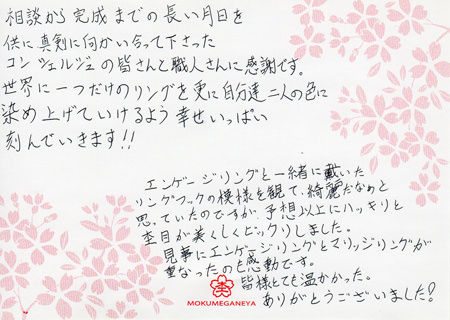 相談から完成までの長い月日を
供に真剣に向かい合って下さった
コンシェルジュの皆さんと職人さんに感謝です。
世界に一つだけのリングを更に自分達二人の色に
染め上げていけるよう幸せいっぱい
刻んでいきます!!
エンゲージリングと一緒に戴いた
リングフックの模様を観て、綺麗だなぁと
思っていたのですが、予想以上にハッキリと
杢目が美くしくビックリしました。
見事にエンゲージリングとマリッジリングが
重なったのも感動です。
皆様とても温かかった。
ありがとうございました!
MOKUMEGANEYA